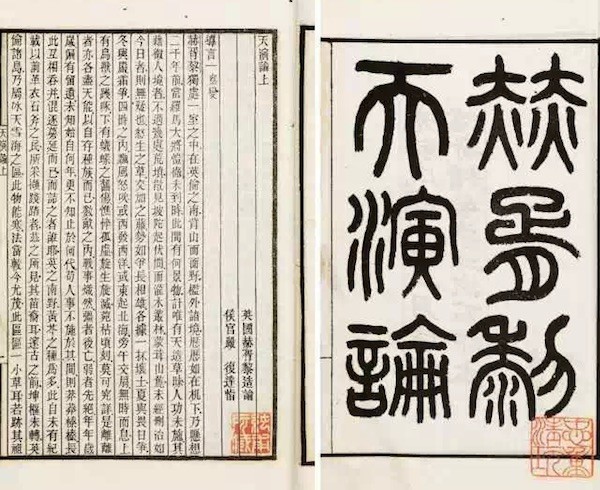 赫胥黎
天演論
天演論上
英國赫胥黎造論
侯官嚴　復達恉
導言一　察變
赫胥黎獨處一室之中在英倫之南背山而面野檻外諸境歷歷如在机下乃懸想
二千年前當羅馬大將愷徹未到時此間有何景物計唯有天造草昧人功未施其
藉徵人境者不過幾處荒墳散見坡陀起伏間而灌木叢林蒙茸山麓未經刪治如
今日者則無疑也怒生之草交加之藤勢如爭長相雄各據一抔壤土夏與畏日爭
冬與嚴霜爭四時之內飄風怒吹或西發西洋或東起北海旁午交扇無時而息上
有鳥獸之踐啄下有蟻蝝之齧傷憔悴孤虛旋生旋滅菀枯頃刻莫可究詳是離離
者亦各盡天能以自存種族而已數畝之內戰事熾然彊者後亡弱者先絕年年歲
歲偏有留遺未知始自何年更不知止於何代苟人事不施於其間則莽莽榛榛長
此互相吞并混逐蔓延而已而詰之者誰耶英之南野黃芩之種為多此自未有紀
載以前革衣石斧之民所采擷踐踏者茲之所見其苗裔耳邃古之前坤樞未轉英
倫諸島乃屬冰天雪海之區此物能寒法當較今尤茂此區區一小草耳若跡其祖
天演論上